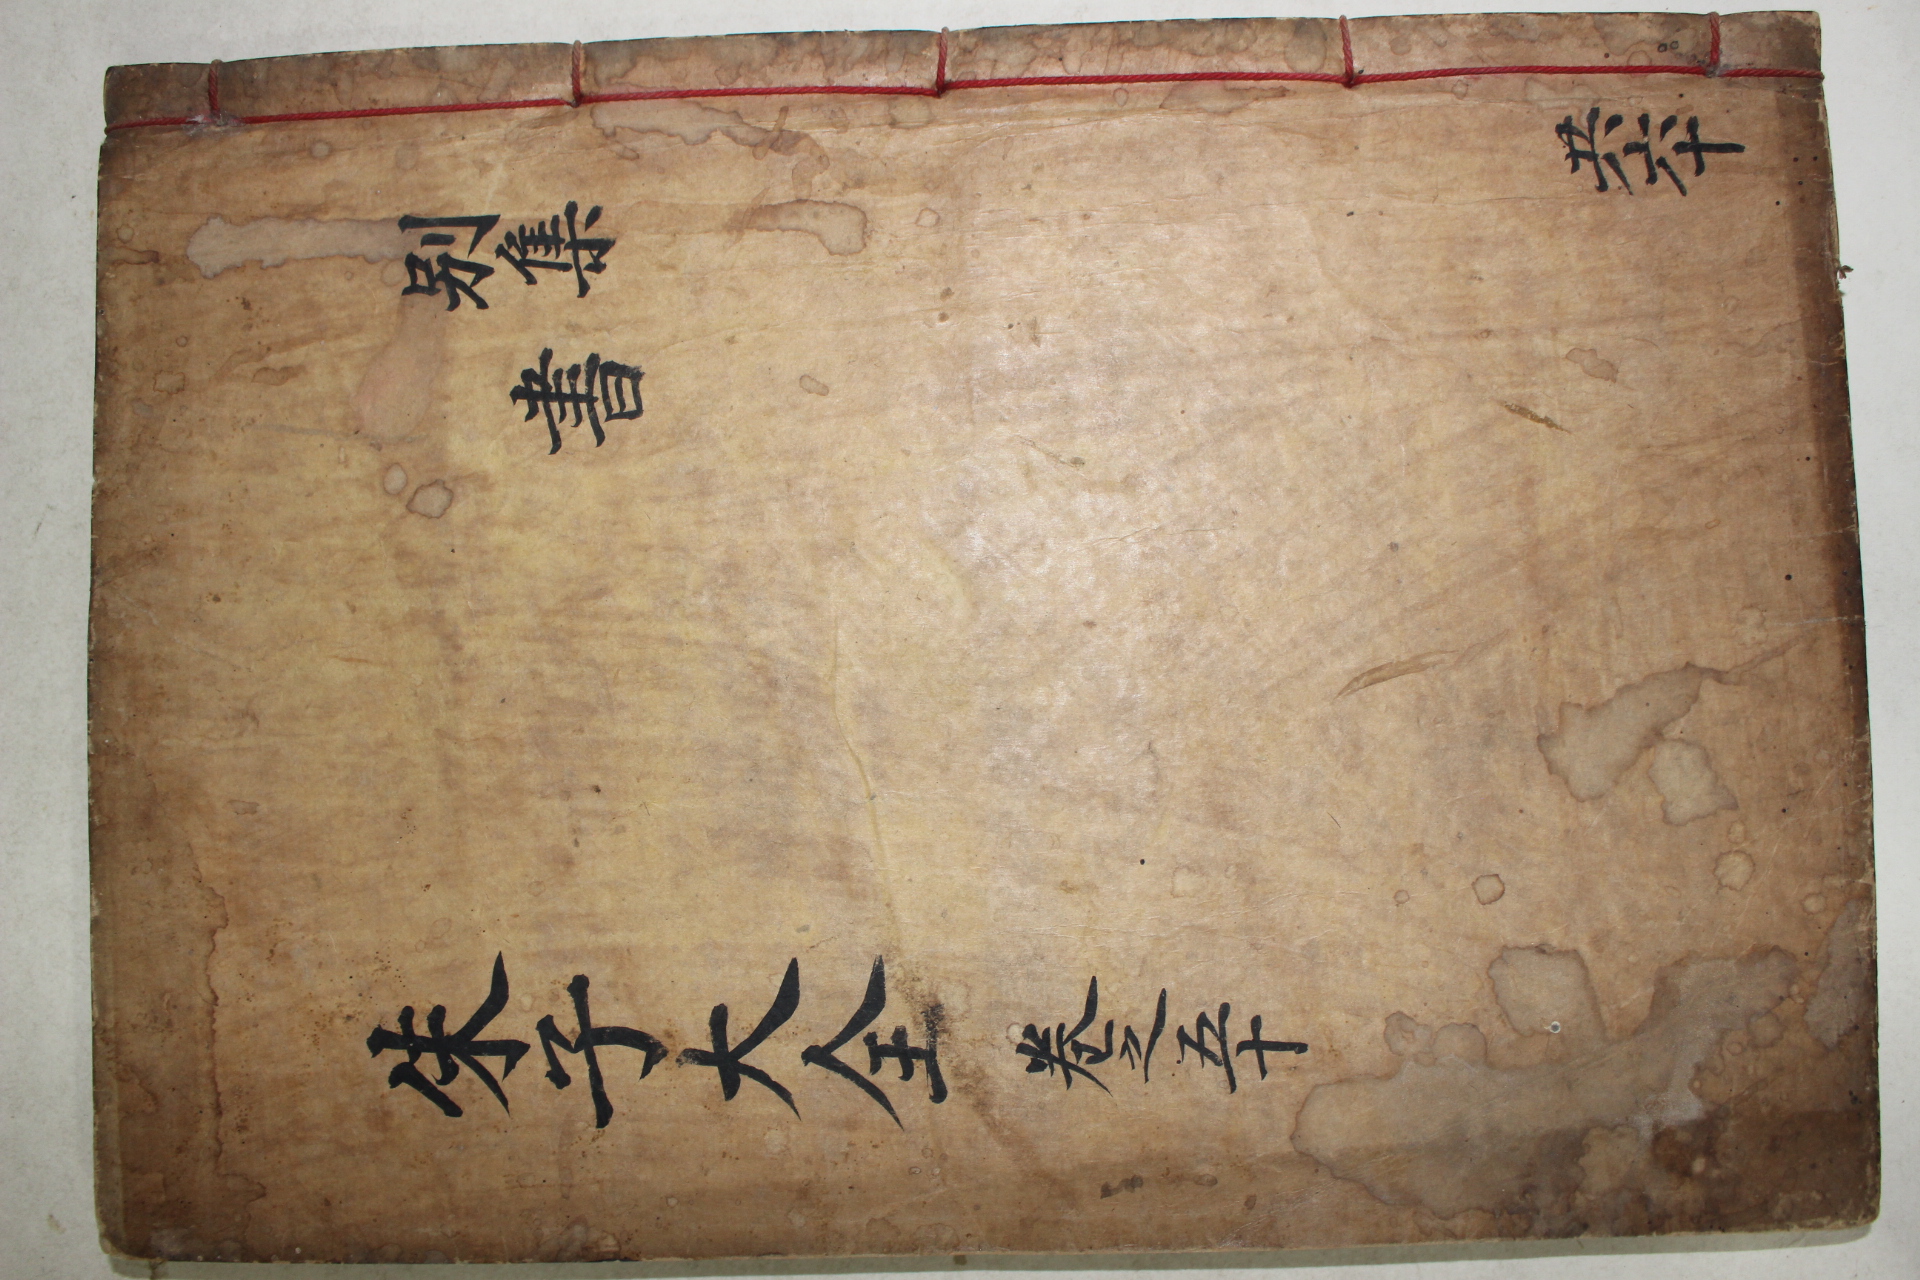 共六十
別集
書
朱子大全 卷之五十